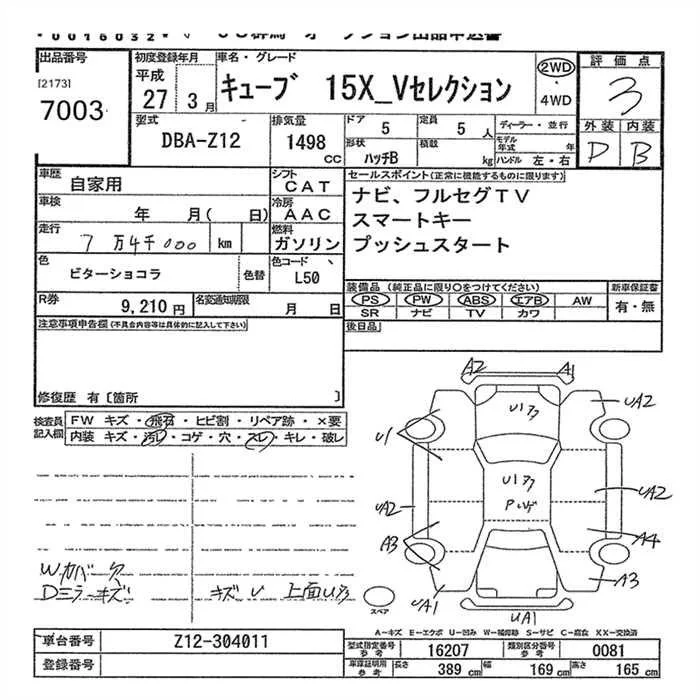 出品番号
[2173]
7003
初度登録年月
平成
27 3月
車名・グレード
キューブ 15X_Vセレクション
2WD
・
4WD
評価点
3
外装 内装
D B
型式
DBA-Z12
排気量
1498 CC
ドア
5
定員
5 人
形状
ハッチB
積載
kg
ディーラー・並行
モデル年式 年
ハンドル 左・右
車歴
自家用
シフト
CAT
車検
年 月( 日)
冷房
AAC
走行
7万4千000 km
燃料
ガソリン
色
ビターショコラ
色替
色コード
L50
R券
9,210円
名変通知期限
月 日
セールスポイント(正常に機能するものに限ります)
ナビ、フルセグTV
スマートキー
プッシュスタート
装備品(純正品に限り○をつけてください)
PS PW ABS エアB AW
SR ナビ TV カワ
新車保証書
有・無
後日品
注意事項申告欄(不具合内容等は具体的に記入して下さい)
修復歴 有〔箇所 〕
検査員記入欄
FW キズ・飛石・ヒビ割・リペア跡・×要
内装 キズ・汚レ・コゲ・穴・スレ・キレ・破レ
Dミラーキズ
キズ U 上面
A2 A1
UA2
U1
U1
UA2
UA2
A3
A4
A3
UA1
UA1
スペア
A-キズ E-エクボ U-凹み W-補修跡 S-サビ C-腐食 XX-交換済
車台番号
Z12-304011
登録番号
型式指定番号参考
16207
類別区分番号参考
0081
車庫証明用参考
長さ 389 cm
幅 169 cm
高さ 165 cm